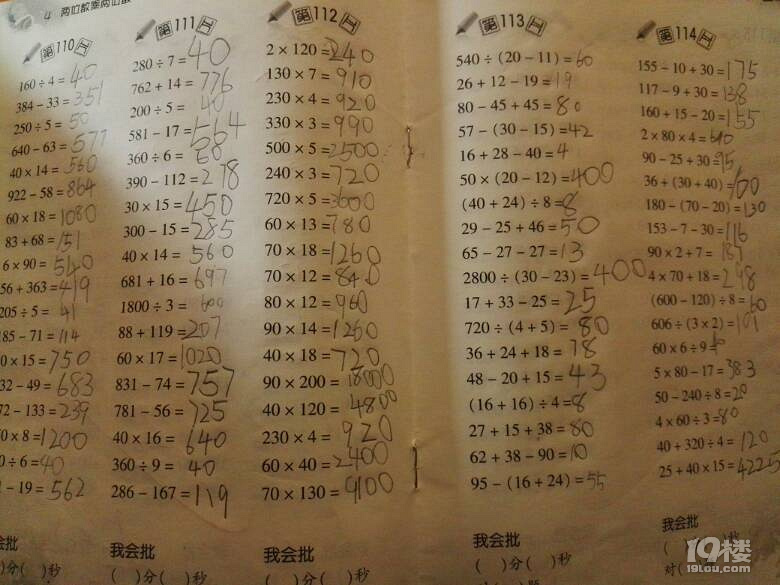 4 两位数乘两位数
第110天
160÷4=40
384-33=351
250÷5=50
640-63=577
40×14=560
922-58=864
60×18=1080
83+68=151
6×90=540
56+363=419
205÷5=41
185-71=114
0×15=750
32-49=683
72-133=239
0×8=1200
0÷6=40
1-19=562
第111天
280÷7=40
762+14=776
200÷5=40
581-17=564
360÷6=60
390-112=278
30×15=450
300-15=285
40×14=560
681+16=697
1800÷3=600
88+119=207
60×17=1020
831-74=757
781-56=725
40×16=640
360÷9=40
286-167=119
我会批
( )分( )秒
第112天
2×120=240
130×7=910
230×4=920
330×3=990
500×5=2500
240×3=720
720×5=3600
60×13=780
70×18=1260
70×12=840
80×12=960
90×14=1260
40×18=720
90×200=18000
40×120=4800
230×4=920
60×40=2400
70×130=9100
我会批
( )分( )秒
第113天
540÷(20-11)=60
26+12-19=19
80-45+45=80
57-(30-15)=42
16+28-40=4
50×(20-12)=400
(40+24)÷8=8
29-25+46=50
65-27-27=13
2800÷(30-23)=400
17+33-25=25
720÷(4+5)=80
36+24+18=78
48-20+15=43
(16+16)÷4=8
27+15+38=80
62+38-90=10
95-(16+24)=55
我会批
( )分( )秒
第114天
155-10+30=175
117-9+30=138
160+15-20=155
2×80×4=640
90-25+30=95
36+(30+40)=
180-(70-20)=130
153-7-30=116
90×2+7=187
4×70+18=298
(600-120)÷8=60
606÷(3×2)=101
60×6÷9=
5×80-17=383
50-240÷8=20
4×60÷3=80
40+320÷4=120
25+40×15=4225
我会批
( )秒
对(
19楼
19lou.com